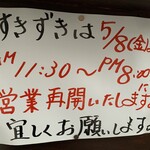 すきずきは5/8(金)
AM11:30〜PM8:00
営業再開いたします
宜しくお願いします。